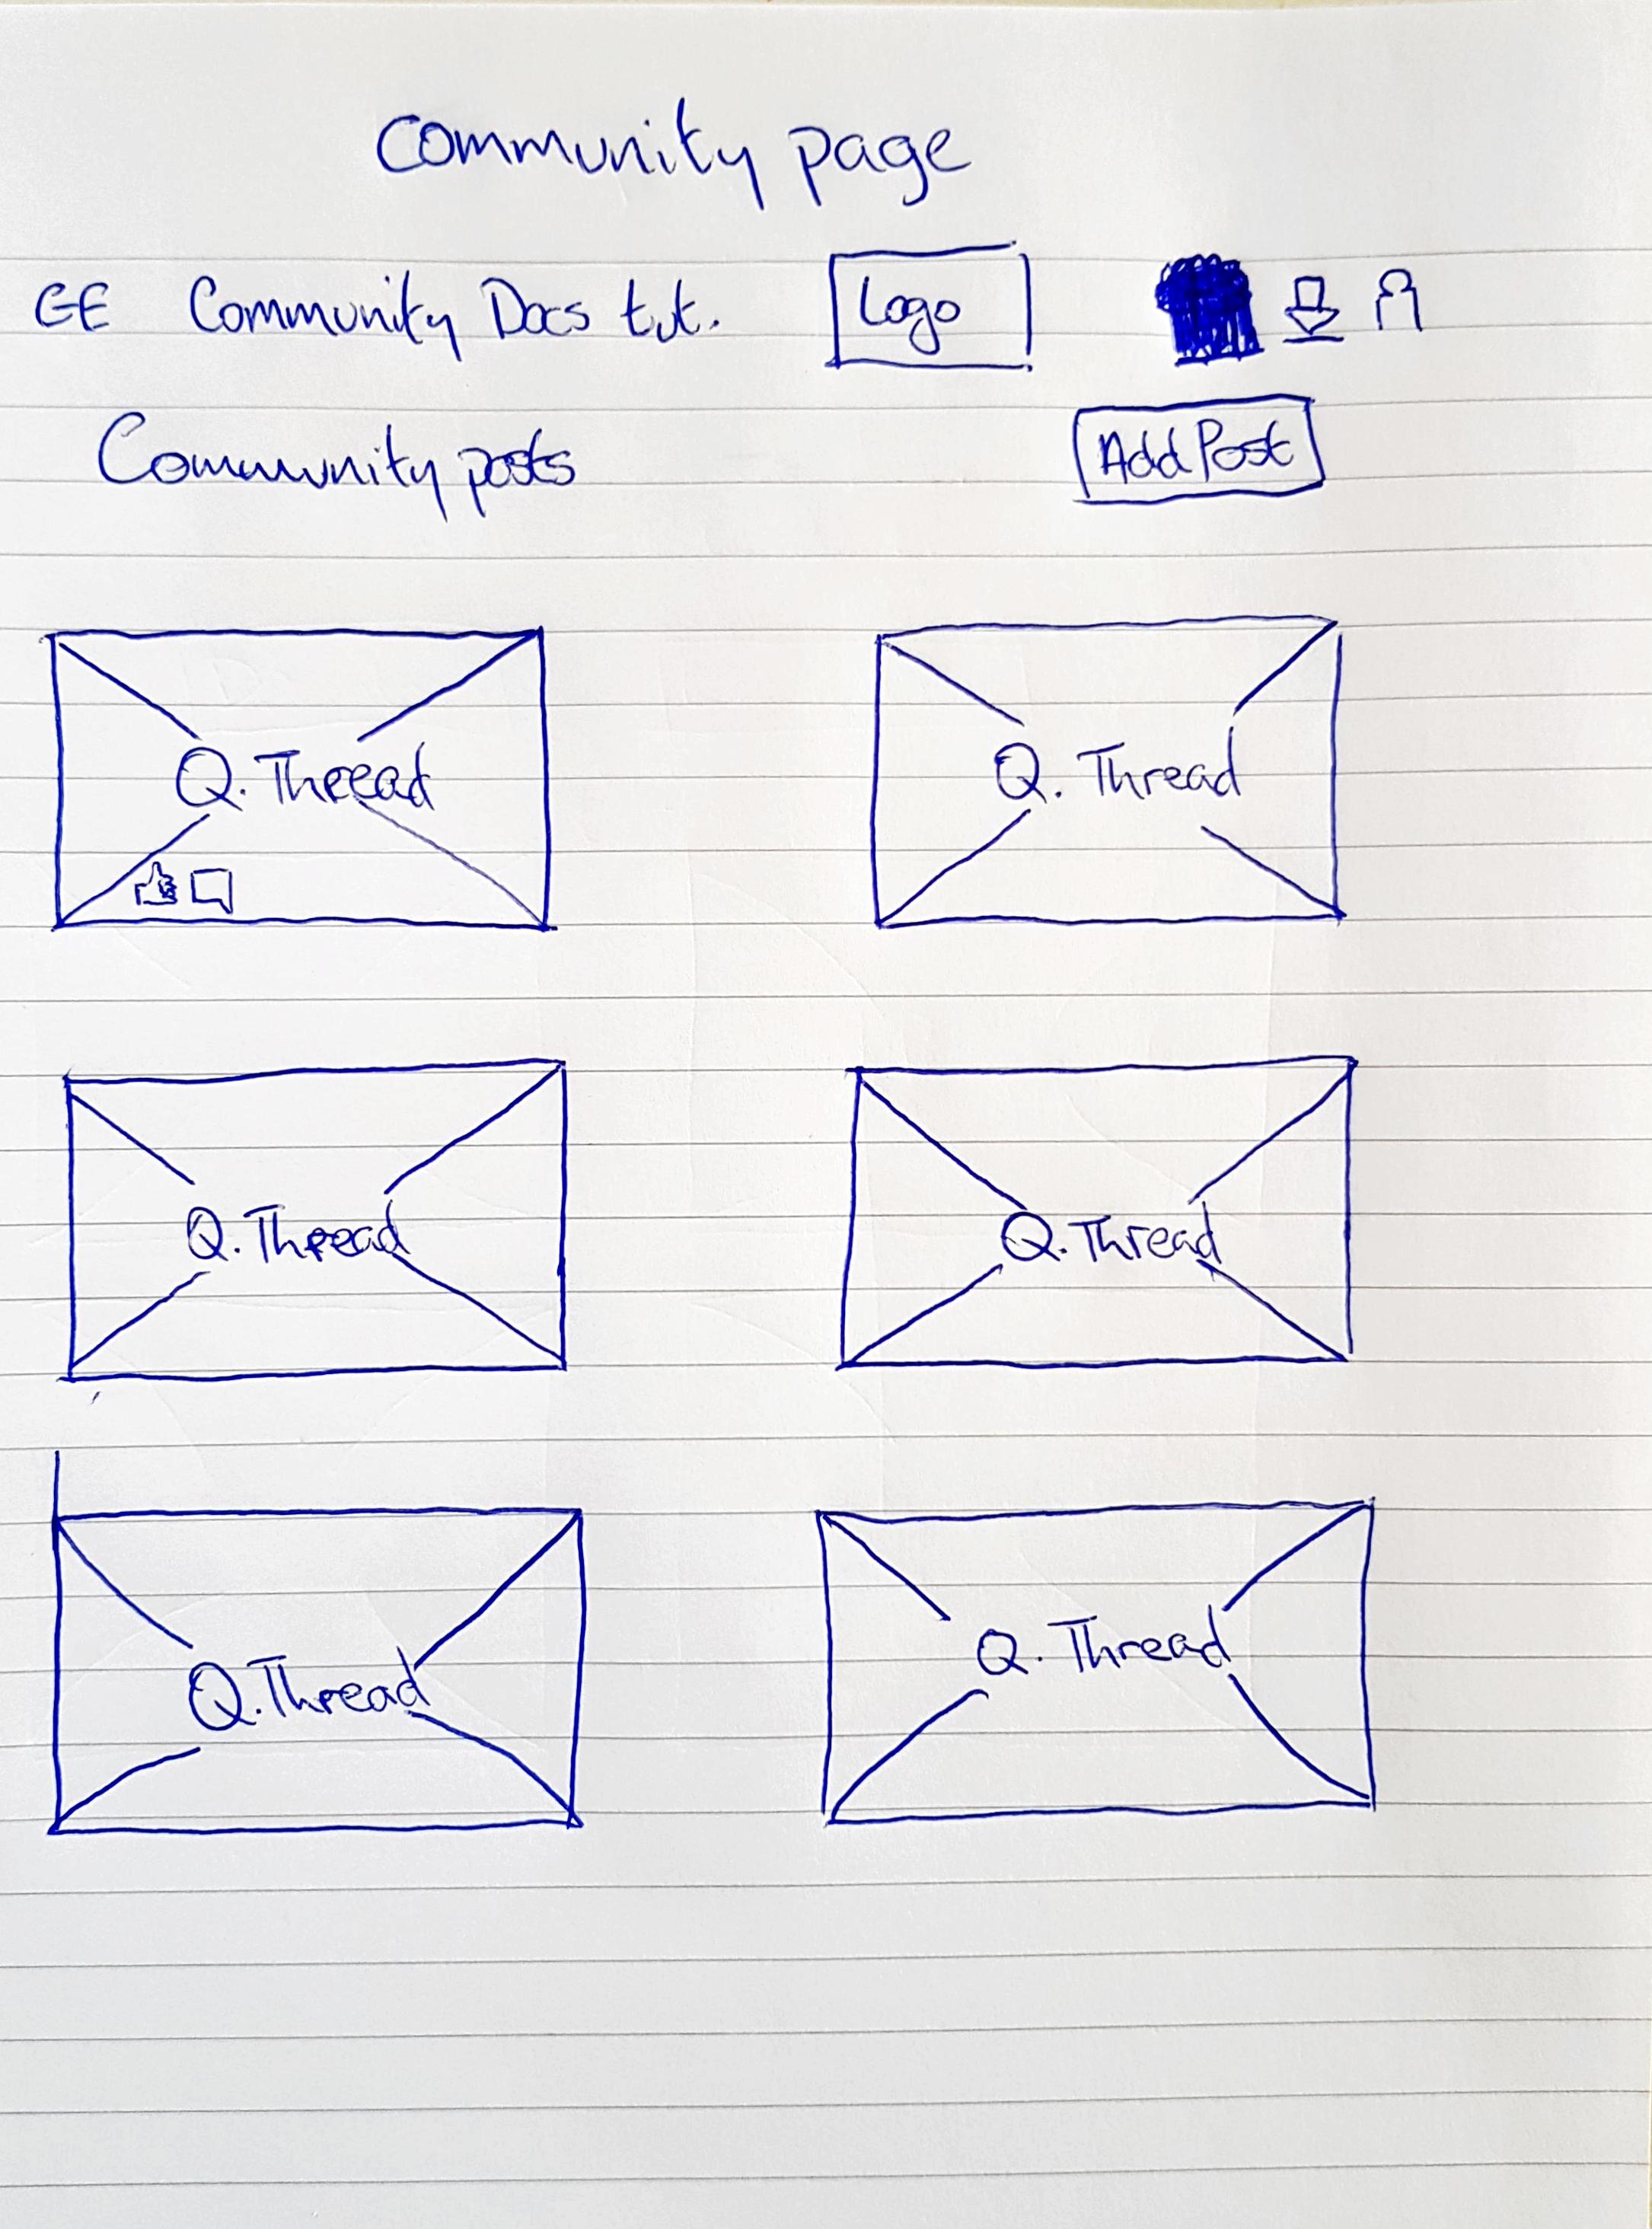 Community page
GE Community Docs tut. Logo
Community posts Add Post
Q. Thread Q. Thread
Q. Thread Q. Thread
Q. Thread Q. Thread